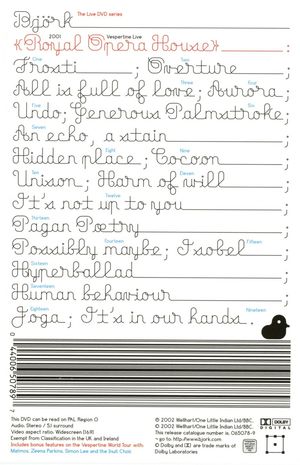 Björk The Live DVD series
2001 Vespertine Live
«Royal Opera House» ;
One Two
Frosti ; Overture ;
Three Four
All is full of love; Aurora;
Five Six
Undo; Generous Palmstroke;
Seven
An echo, a stain ;
Eight Nine
Hidden place ; Cocoon ;
Ten Eleven
Unison ; Harm of will ;
Twelve
It's not up to you ;
Thirteen
Pagan Poetry ;
Fourteen Fifteen
Possibly maybe; Isobel ;
Sixteen
Hyperballad ;
Seventeen
Human behaviour ;
Eighteen Nineteen
Joga; It's in our hands.
This DVD can be read on PAL, Region 0
Audio: Stereo / 5.1 surround
Video aspect ratio: Widescreen (16:9)
Exempt from Classification in the UK and Ireland
Includes bonus features on the Vespertine World Tour with:
Matmos, Zeena Parkins, Simon Lee and the Inuit Choir
℗ 2002 Wellhart/One Little Indian Ltd/BBC.
© 2002 Wellhart/One Little Indian Ltd/BBC.
This release catalogue number is: 065078-9
go to: http://www.bjork.com
® Dolby and DD are trade marks of
Dolby Laboratories
DOLBY
DIGITAL